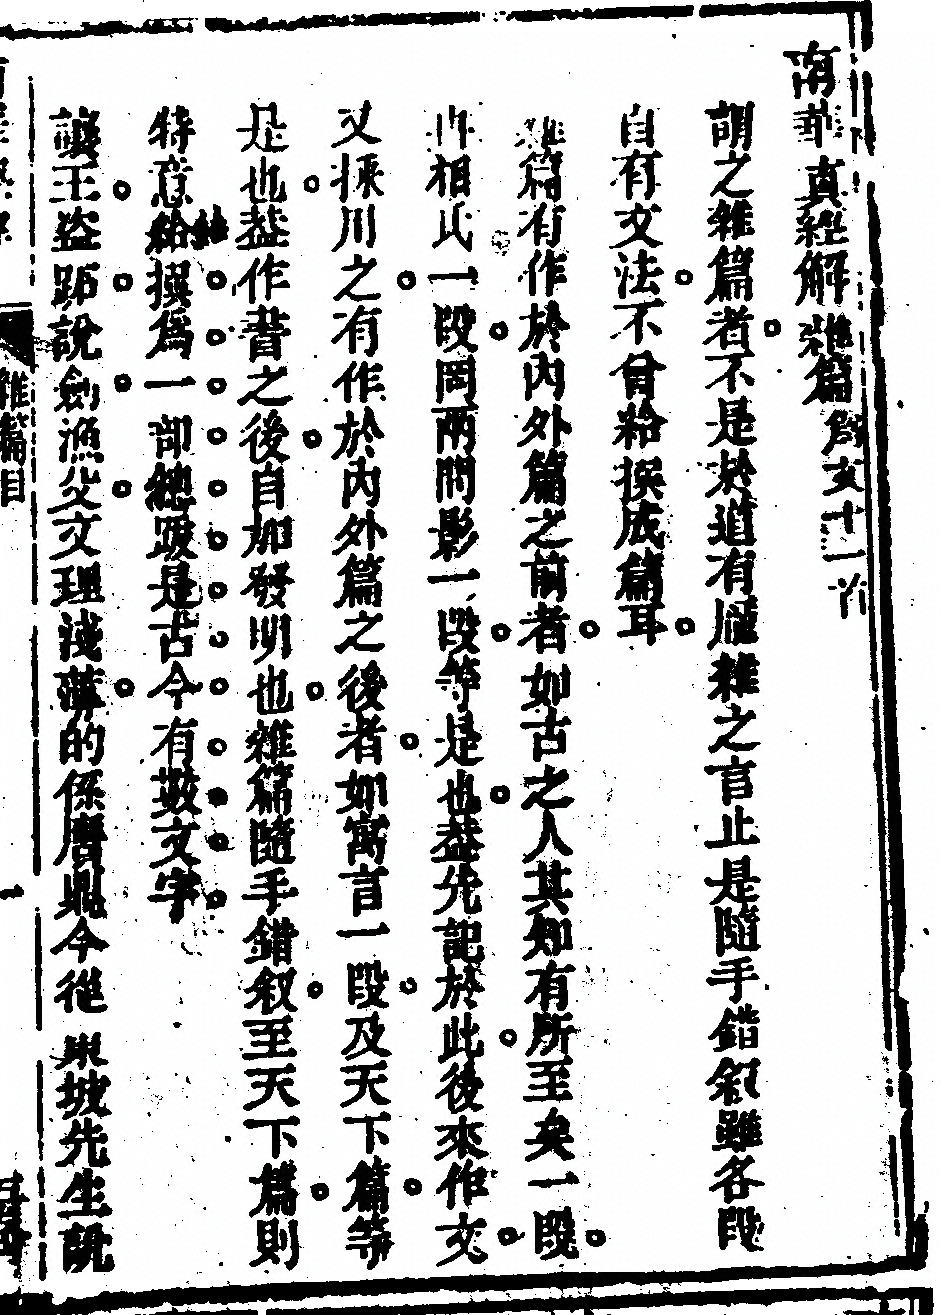 南華真經解雜篇
十一首
謂之雜篇者不是於道有龐雜之言止是隨手錯叙雖各段
自有文法不曾給撰成篇耳
雜篇有作於内外篇之前者如古之人其知有所至矣一段
冉相氏一段罔兩問影一段等是也蓋先記於此後來作文
又採川之有作於内外篇之後者如寓言一段及天下篇等
是也蓋作書之後自加發明也雜篇隨手錯叙至天下篇則
特意給撰爲一部總跋是古今有數文字
讓王盜跖說劍漁父文理淺薄的係贗鼎今從 東坡先生說
雜篇目
一